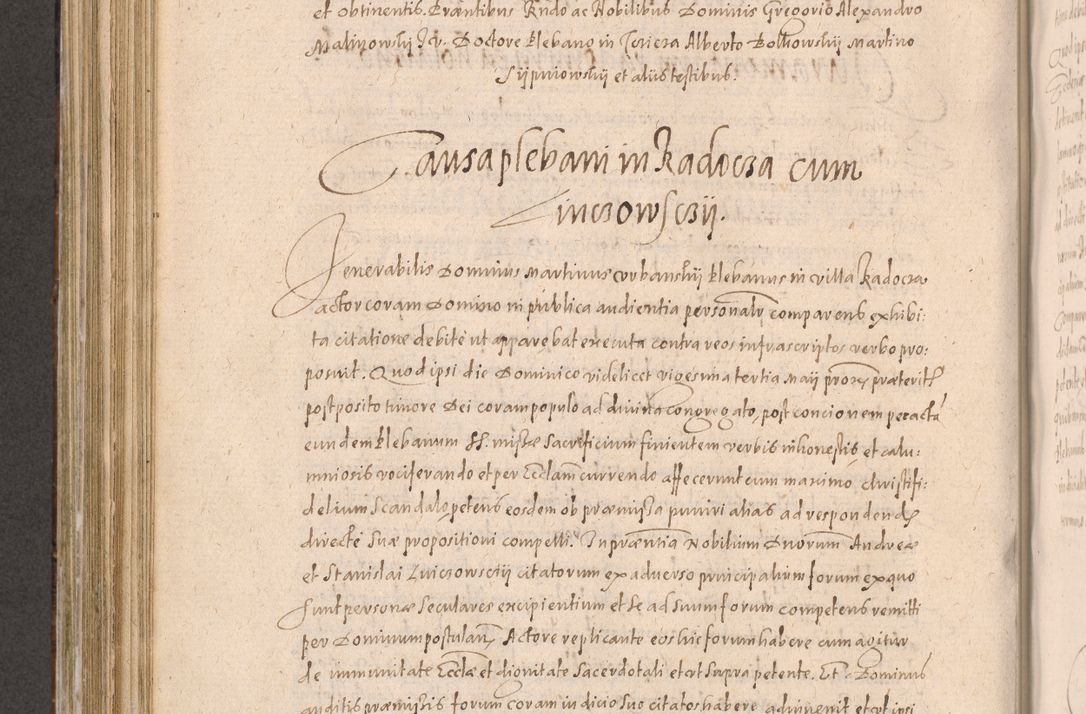 et obtinentis. Præntibus Rndo ac Nobilibus Dominis Gregorio Alexandro
Malinowskij Jr. Doctore Plebano in Alberto Bolkowskij Martino
Sijpniowskij et aliis testibus.
Causa plebani in Radocza cum
Linczowsczij.
Venerabilis Dominus Martinus Vrbanskij Plebanus in villa Radocza
actor coram Domino in publica audientia personalr comparens exhibi:
ta citatione debite ut apparebat executa contra reos infrascriptos verbo pro:
posuit. Quod ipsi die Dominico videlicet vigesima tertia Maij prox præterit
postposito timore Dei coram populo ad divina congregato, post concionem peracta
eundem Plebanum SS. missæ Sacrificium finientem verbis inhonestis et calu:
mniosis vociferando et per Ecclam currendo affecerunt cum maximo christifi:
delium Scandalo, petens eosdem ob præmissa puniri alias ad respondend
directe suæ propositioni compelli. In præntia Nobilium Dnorum Andreæ
et Stanislai Linczowsczij citatorum ex adverso principalium forum ex quo
sunt personæ Seculares excipientium et se ad suum forum competens remitti
per Dominum postulan, Actore replicante eos hic forum habere cum agitur
de immunitate Ecclæ et dignitate Sacerdotali et ut supra petente. Et Dominus
auditis præmissis forum coram iudicio suo citatos habere adinvenit et ut ipsi